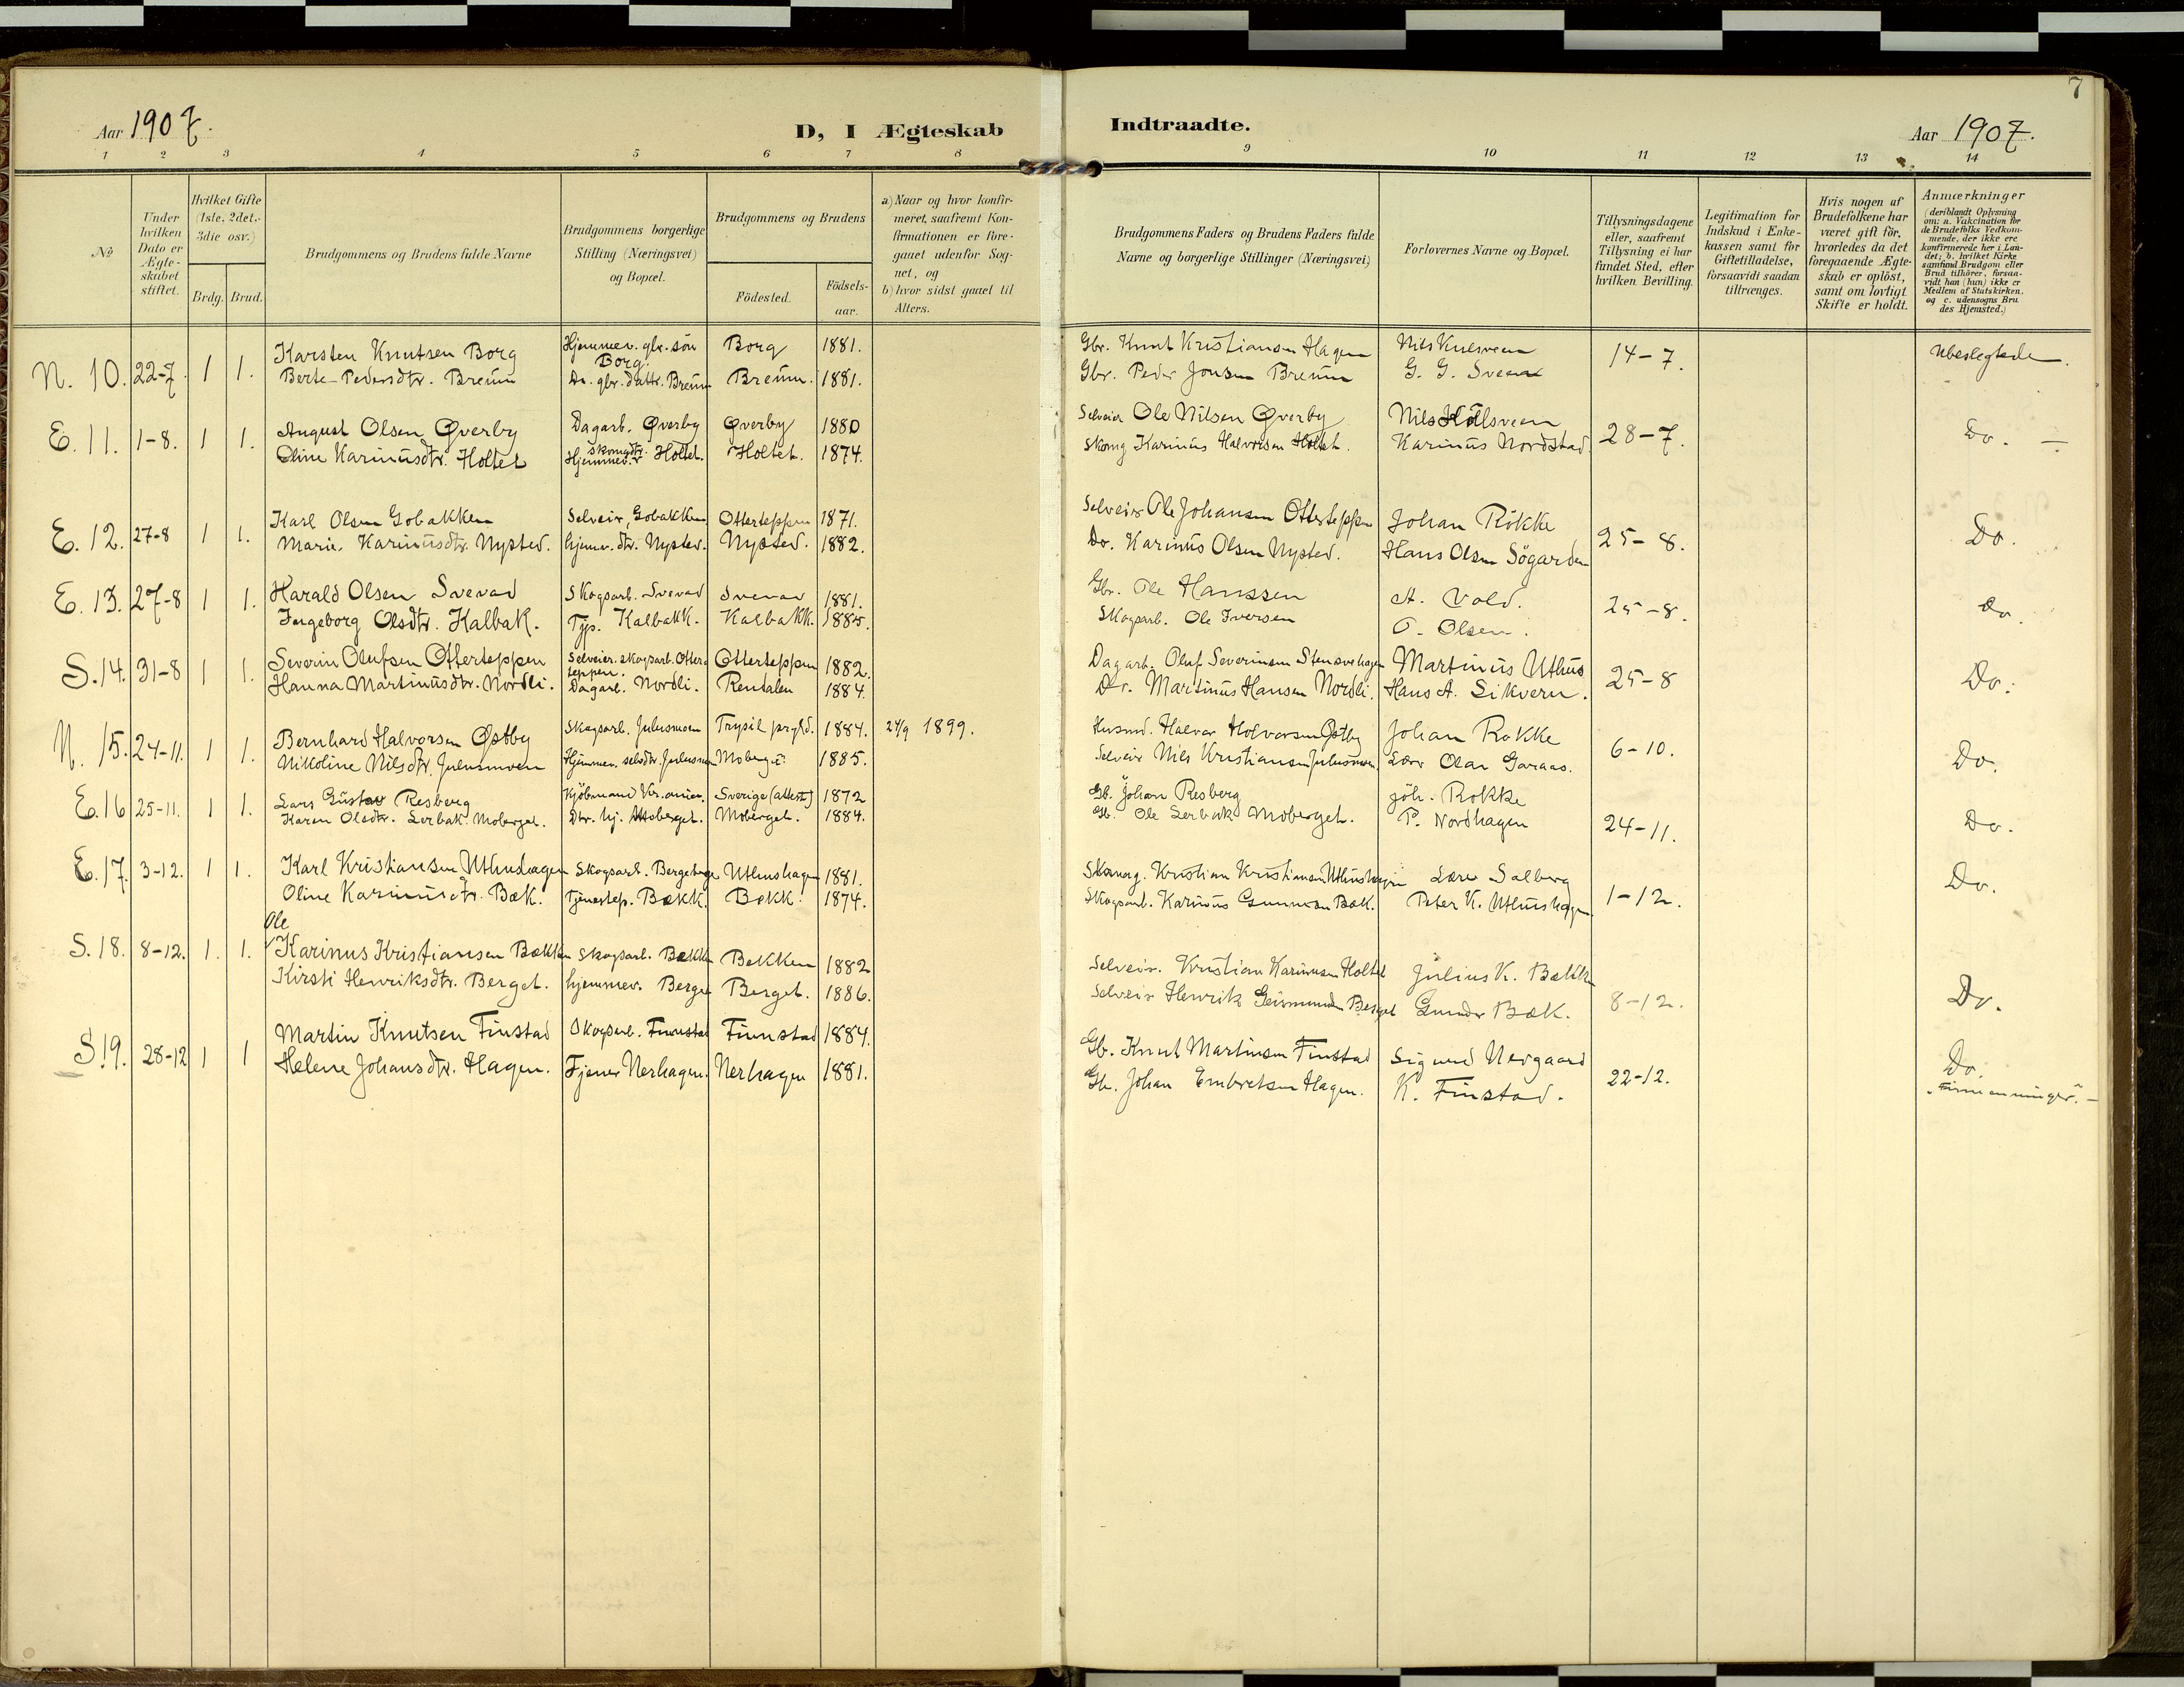 7
Aar 1907.
D, I Ægteskab
Indtraadte.
Aar 1907.
1 2 3 4 5 6 7 8 9 10 11 12 13 14
No
Under hvilken Dato er Ægteskabet stiftet.
Hvilket Gifte (1ste, 2det, 3die osv.)
Brdg. Brud.
Brudgommens og Brudens fulde Navne
Brudgommens borgerlige Stilling (Næringsvei) og Bopæl.
Brudgommens og Brudens
Födested.
Födselsaar.
a) Naar og hvor konfirmeret, saafremt Konfirmationen er foregaaet udenfor Sognet, og
b) hvor sidst gaaet til Alters.
Brudgommens Faders og Brudens Faders fulde Navne og borgerlige Stillinger (Næringsvei)
Forlovernes Navne og Bopæl.
Tillysningsdagene eller, saafremt Tillysning ei har fundet Sted, efter hvilken Bevilling.
Legitimation for Indskud i Enkekassen samt for Giftetilladelse, forsaavidt saadan tiltrænges.
Hvis nogen af Brudefolkene har været gift för, hvorledes da det foregaaende Ægteskab er oplöst, samt om lovligt Skifte er holdt.
Anmærkninger
(deriblandt Oplysning om: a. Vakcination för de Brudefolks Vedkommende, der ikke ere konfirmerede her i Landet; b. hvilket Kirkesamfund Brudgom eller Brud tilhörer, forsaavidt han (hun) ikke er Medlem af Statskirken, og c. udensogns Brudes Hjemsted.)
N. 10. 22-7. 1 1. Karsten Knutsen Borg Hjemmev. gbr. sön Borg. Borg 1881. Gbr. Knut Kristiansen Hagen 14-7. Ubeslegtede.
Berte Pedersdtr. Brenn Do. gbr. dattr. Brenn Brenn. 1881. Gbr. Peder Jonsen Brenn G. G. Sveen
E. 11. 1-8. 1 1. August Olsen Øverby Dagarb. Øverby Øverby 1880 Selveier Ole Nilsen Øverby Nils Kölsveen 28-7. Do. —
Oline Karinusdtr. Holtet Hjemmev. skomgdtr. Holtet. Holtet. 1874. Skomg Karinus Halvorsen Holtet. Karinus Nordstad
E. 12. 27-8 1 1. Karl Olsen Gobakken Selveier, Gobakken Otterteppen 1871. Selveier Ole Johansen Otterteppen Johan Rökke 25-8. Do.
Marie Karinusdtr. Nysted. hjemv. dtr. Nysted. Nysted. 1882. Do. Karinus Olsen Nysted. Hans Olsen Sögarden
E. 13. 27-8 1 1. Harald Olsen Svevad Skogsarb. Svevad Svevad 1881. Gbr. Ole Hanssen A. Vold. 25-8. Do.
Ingeborg Olsdtr. Kalbak. Tjp. Kalbakk. Kalbakk. 1885. Skogsarb. Ole Iversen O. Olsen.
S. 14. 31-8 1 1. Severin Olufsen Otterteppen Selveier. skogsarb. Otterteppen. Otterteppen 1882. Dagarb. Oluf Severinsen Martinus Uthus 25-8 Do.
Hanna Martinusdtr. Nordli. Dagarb. Nordli. Rendalen 1884. Do. Martinus Hansen Nordli. Hans A. Sikvern.
N. 15. 24-11. 1 1. Bernhard Halvorsen Østby Skogsarb. Julusmoen Trysil prgld. 1884. 24/9 1899. Husmd. Halvor Halvorsen Østby Johan Rokke 6-10. Do.
Nikoline Nilsdtr. Julusmoen Hjemmev. selvdtr. Julusmoen Moberget 1885. Selveier Nils Kristiansen Julusmoen. Lærer Olav Garaas.
E. 16 25-11. 1 1. Lars Gustav Resberg Kjöbmand Kr.ania. Sverige (attest) 1872 Gb. Johan Resberg Joh. Rokke 24-11. Do.
Karen Olsdtr. Lerbak. Moberget. Dtr. hj. Moberget. Moberget. 1884. Gb. Ole Lerbak Moberget. P. Nordhagen
E. 17. 3-12. 1 1. Karl Kristiansen Uthushagen Skogsarb. Uthushagen 1881. Skomag. Kristian Kristiansen Uthushagen Lærer Solberg 1-12. Do.
Oline Karinusdtr. Bæk. Tjenestep. Bækk. Bækk. 1874. Skogsarb. Karinus Gunnersen Bæk. Peter K. Uthushagen
Ole
S. 18. 8-12. 1. 1. Karinus Kristiansen Bækken Skogsarb. Bækken Bekken 1882 Selveier. Kristian Karinusen Holtet Julius K. Bækken 8-12. Do.
Kirsti Henriksdtr. Berget. hjemmev. Berget Berget. 1886. Selveier Henrik Berget Gunder Bæk.
S. 19. 28-12 1 1 Martin Knutsen Finstad Skogsarb. Finnstad Finnstad 1884. Gb. Knut Martinsen Finstad Sigurd Nergaard 22-12. Do.
Helene Johansdtr. Hagen. Tjener Nerhagen. Nerhagen 1881. Gbr. Johan Embretsen Hagen. K. Finstad.